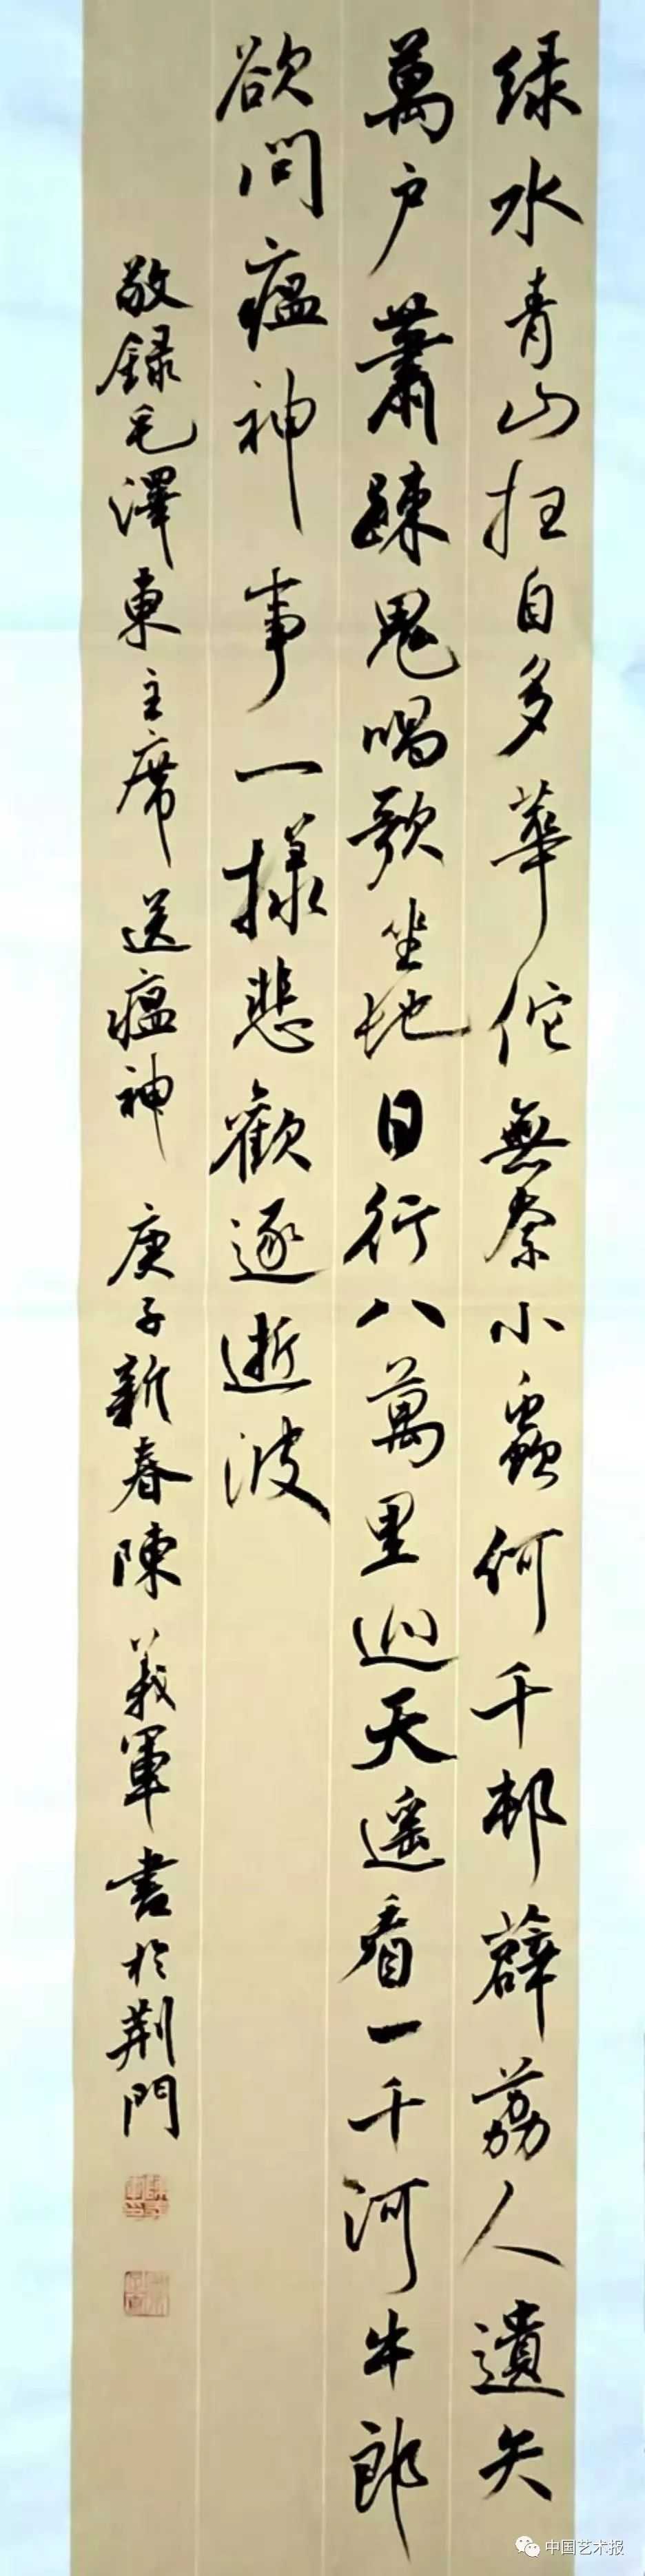 绿水青山扫自多華佗無奈小蟲何千邨薜荔人遺矢
萬户蕭疎鬼唱歌坐地日行八萬里巡天遥看一千河牛郎
欲問瘟神事一樣悲歡逐逝波
敬錄毛澤東主席送瘟神庚子新春陳義軍書於荆門
中国艺术报